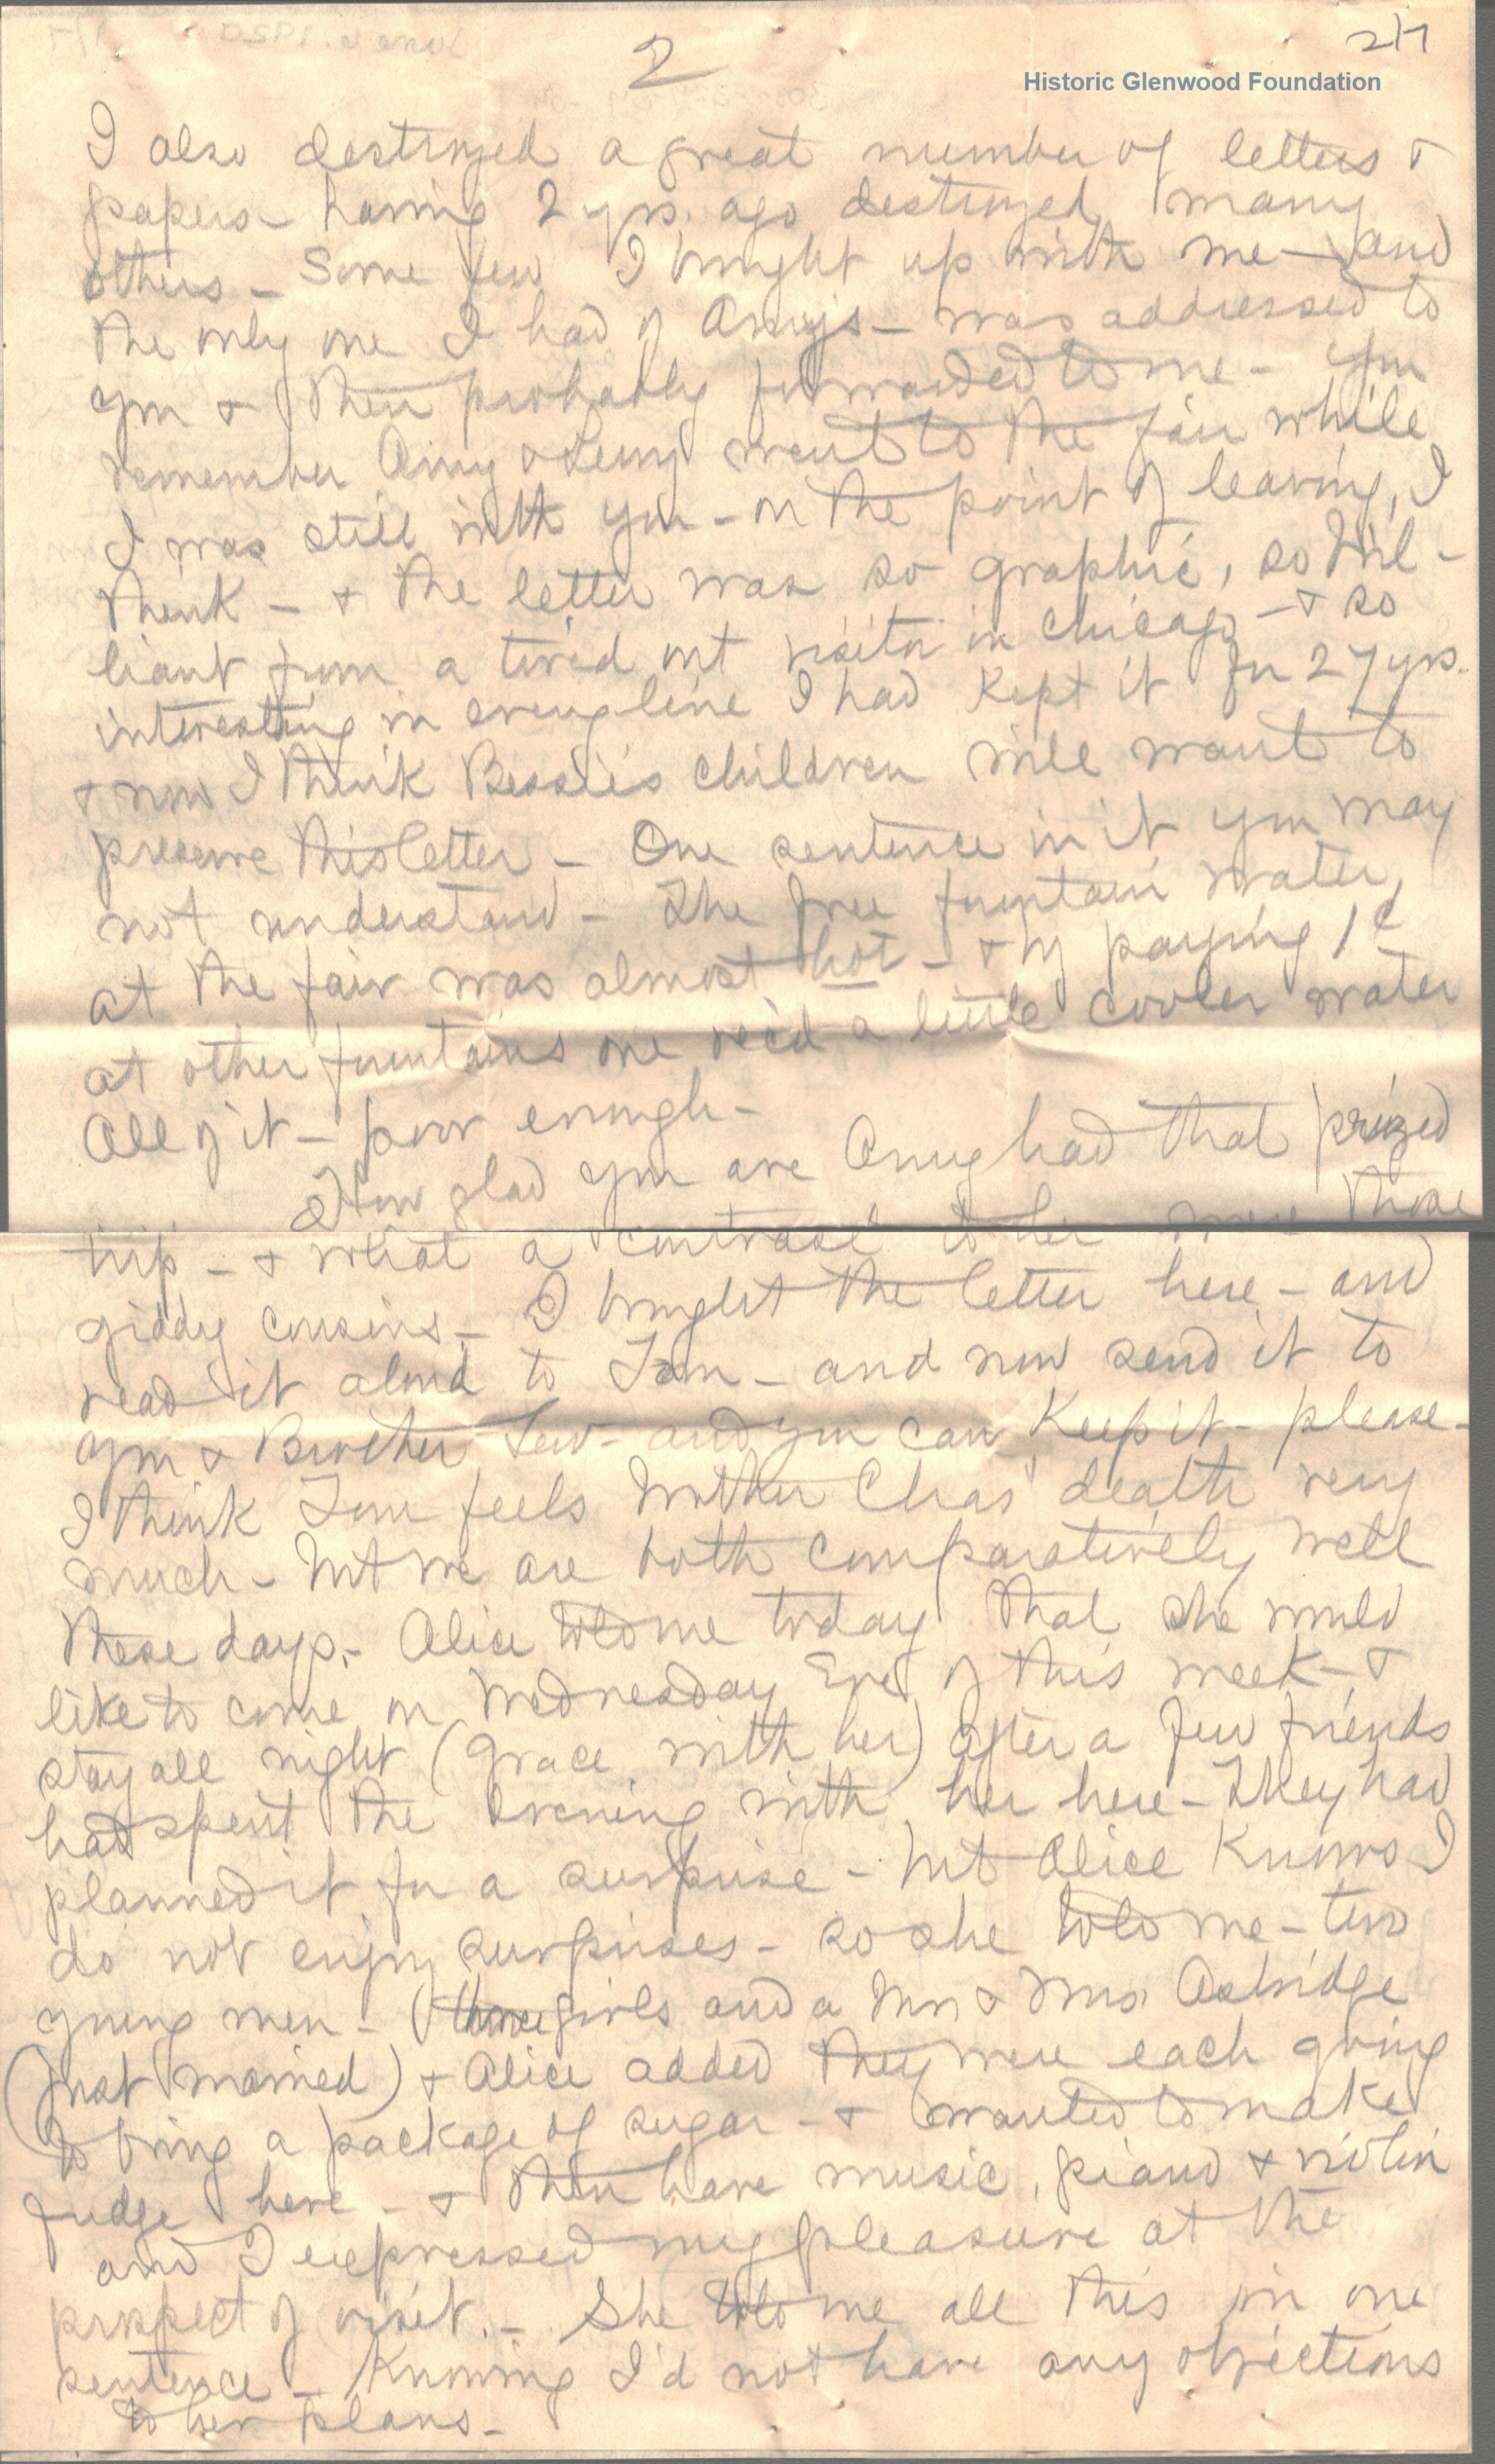 2
2/7
Historic Glenwood Foundation
I also destroyed a great number of letters &
papers - having 2 yrs. ago destroyed many
others - Some few I brought up with me - and
the only one I had of Amy's - was addressed to
you & then probably forwarded to me - You
remember Amy & went to the fair while
I was still with you - on the point of leaving, I
think - & the letter was so graphic, so bril-
liant from a tired out visitor in Chicago - & so
interesting in every line I had kept it for 27 yrs.
& now I think Bessie's children will want to
preserve this letter - One sentence in it you may
not understand - The free fountain water,
at the fair was almost hot - & by paying 1¢
at other fountains one rec'd a little cooler water
All of it - poor enough -
How glad you are Amy had that prized
trip - & what a contrast to her were those
giddy cousins - I brought the letter here - and
read it aloud to Tom - and now send it to
you & Brother Lew - and you can keep it - please -
I think Tom feels brother Chas' death very
much - but we are both comparatively well
these days - Alice told me today that she would
like to come on Wednesday Eve of this week - &
stay all night (Grace with her) after a few friends
had spent the evening with her here - They had
planned it for a surprise - but Alice knows I
do not enjoy surprises - so she told me - two
young men - three girls and a Mr & Mrs
(just married) & Alice added they were each going
to bring a package of sugar - & wanted to make
fudge here - & then have music, piano & violin
and I expressed my pleasure at the
prospect of visit. - She told me all this in one
sentence - Knowing I'd not have any objections
to her plans -